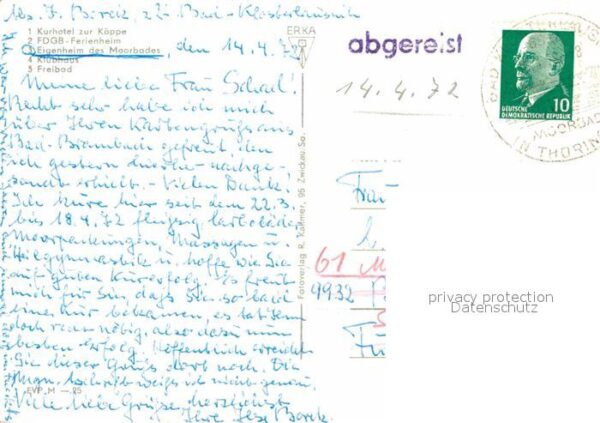 Abs. I. Barck, zz. Bad-Klosterlausnitz
1 Kurhotel zur Köppe
2 FDGB-Ferienheim
3 Eigenheim des Moorbades
4 Klubhaus
5 Freibad
den 14.4.72
ERKA
abgereist
14.4.72
10
DEUTSCHE
DEMOKRATISCHE REPUBLIK
MOORBAD
IN THÜRIN
Meine liebe Frau Schaal!
Recht sehr habe ich mich
über Ihren Kartengruß aus
Bad-Brambach gefreut, den
ich gestern hierher nachge-
sandt erhielt. - Vielen Dank!
Ich kure hier seit dem 22.3.
bis 18.4.72 fleißig
Moorpackungen, Massagen u.
Heilgymnastik u. hoffe wie Sie
auf guten Kurerfolg. Es freut
mich für Sie, daß Sie so bald
eine Kur bekamen, es tat Ihnen
doch sehr nötig, also dazu nun
besten Erfolg. Hoffentlich erreicht
Sie dieser Gruß dort noch. Die
weiß ich nicht genau.
Viele liebe Grüße, herzlichst
Ihre Ilse Barck.
EVP M —.25
Fotoverlag R. Kallmer, 95 Zwickau, Sa.
Frau
61 M
9932
privacy protection
Datenschutz